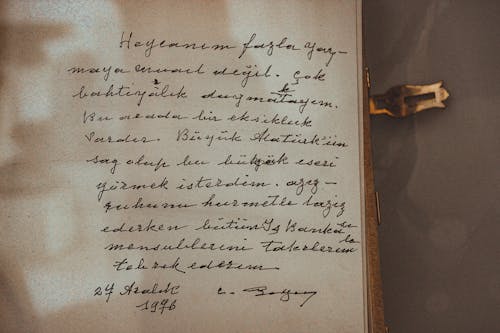 Heycanım fazla yaz-
maya müsait değil. Çok
bahtiyarlık duymaktayım.
Bu arada bir eksiklik
vardır. Büyük Atatürk'ün
sağ olup bu büyük eseri
görmek isterdim. aziz-
ruhunu hürmetle taziz
ederken bütün İş Bankası
mensublarını takdirlerimle
tebrik ederim
24 Aralık C. Bayar
1976